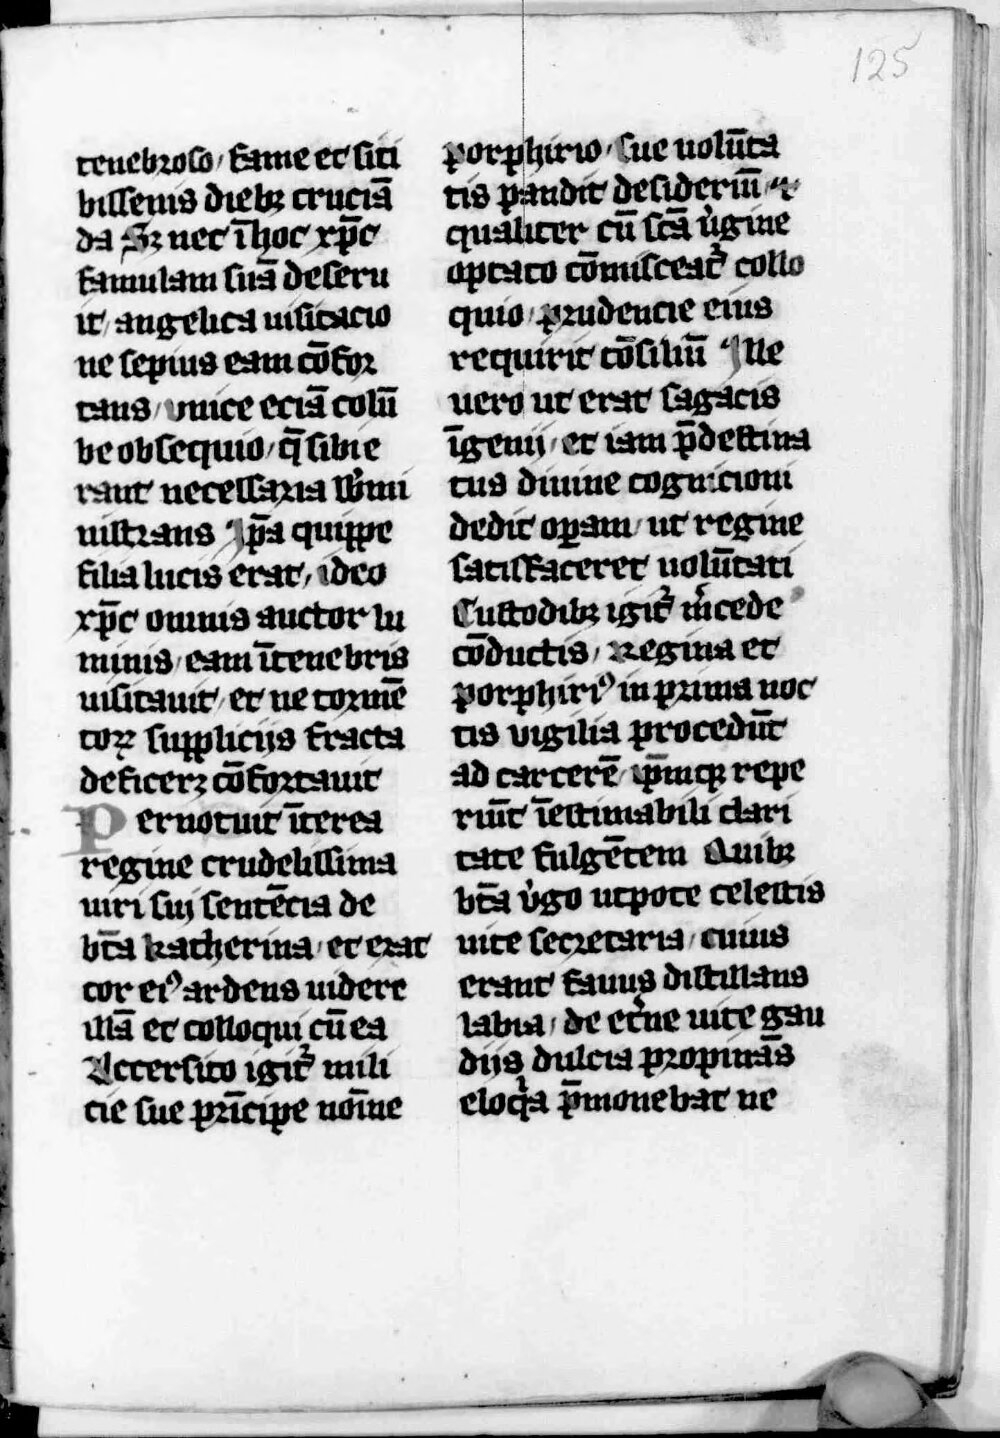 125
tenebroso / fame et siti
bissenis diebꝫ cruciā
da Sꝫ nec īhoc xp̄c
famulam suā deseru
it / angelica uisitacio
ne sepius eam cōfor
tans / vnice eciā colū
be obsequio / q̄ sibi e
rant necessaria sb̾mi
nistrans Ip̄a quippe
filia lucis erat / ideo
xp̄c omnis auctor lu
minis / eam ītenebris
uisitauit / et ne tormē
toꝝ supplicijs fracta
deficerꝫ cōfortauit
Pernotuit īterea
regine crudelissima
uiri sui sentēcia de
bt̄a katherina / et erat
cor ei⁹ ardens uidere
illā et colloqui cū ea
Accersito igit᷑ mili
cie sue prīcipe noīne
porphirio / sue volūta
tis pandit desideriū / et
qualiter cū sc̄a v̾gine
optato cōmisceat᷑ collo
quio / prudencie eius
requirit cōsiliū Ille
uero ut erat sagacis
īgenij / et iam p̄destina
tus diuine cognicioni
dedit oꝑam / ut regine
satisfaceret uolūtati
Custodibꝫ igit᷑ m̾cede
cōductis / Regina et
porphiri⁹ in prima noc
tis vigilia procedūt
ad carcerē / ip̄mqꝫ repe
riūt īestimabili clari
tate fulgētem Quibꝫ
bt̄a v̾go utpote celestis
uite secretaria / cuius
erant fauus distillans
labia / de et̾ne uite gau
dijs dulcia propinās
eloqͥa p̄monebat ne